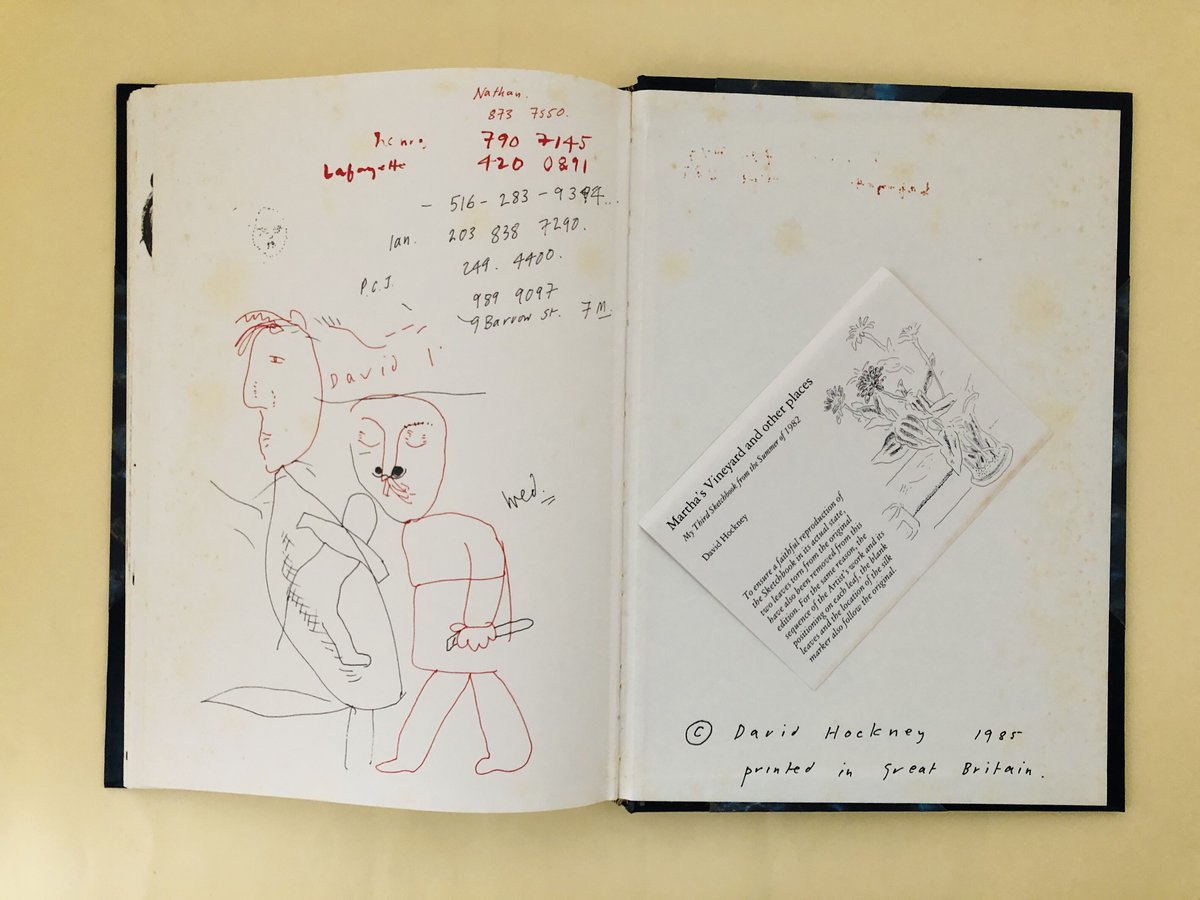 Nathan.
873 7550.
790 7145
Lafayette 420 0891
- 516 - 283 - 93
Ian. 203 838 7290.
249. 4400.
P.C.J.
989 9097
9 Barrow St. 7 M.
David
wed.
Martha's Vineyard and other places
My Third Sketchbook from the Summer of 1982
David Hockney
To ensure a faithful reproduction of
the Sketchbook in its actual state,
two leaves torn from the original
have also been removed from this
edition. For the same reason, the
sequence of the Artist's work and its
positioning on each leaf, the blank
leaves and the location of the silk
marker also follow the original.
© David Hockney 1985
printed in Great Britain.